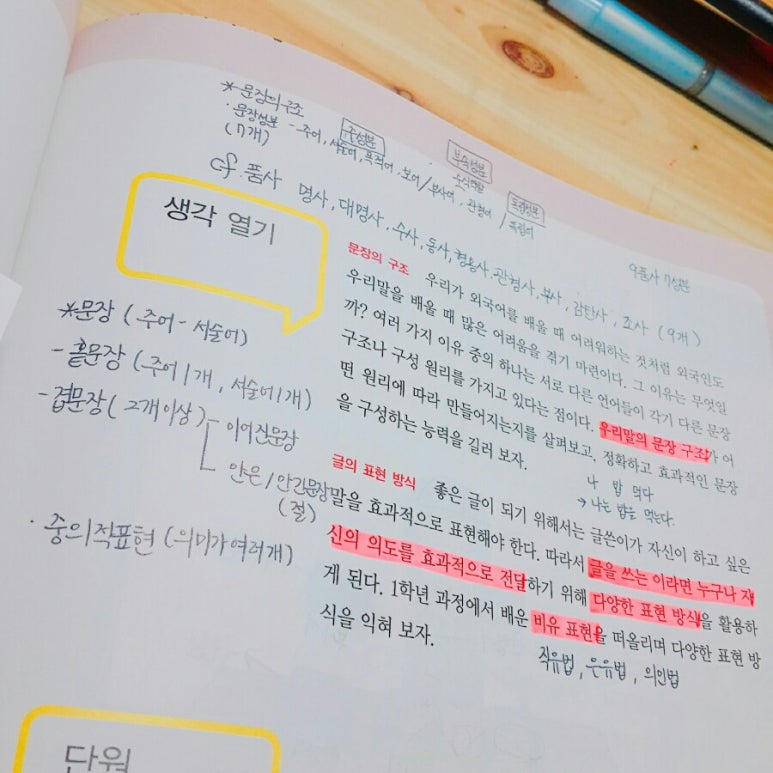 *문장의 구조
· 문장성분 - 주어, 서술어, 목적어, 보어 / 부사어, 관형어 / 독립어
(7개)
주성분
부속성분
수식역할
독립성분
cf. 품사 명사, 대명사, 수사, 동사, 형용사, 관형사, 부사, 감탄사, 조사 (9개)
9품사 7성분
생각 열기
*문장 (주어 - 서술어)
- 홑문장 (주어 1개, 서술어 1개)
- 겹문장 (2개 이상)
이어진문장
안은 / 안긴문장
(절)
· 중의적표현 (의미가 여러개)
문장의 구조 우리가 외국어를 배울 때 어려워하는 것처럼 외국인도
우리말을 배울 때 많은 어려움을 겪기 마련이다. 그 이유는 무엇일
까? 여러 가지 이유 중의 하나는 서로 다른 언어들이 각기 다른 문장
구조나 구성 원리를 가지고 있다는 점이다. 우리말의 문장 구조가 어
떤 원리에 따라 만들어지는지를 살펴보고, 정확하고 효과적인 문장
을 구성하는 능력을 길러 보자.
나 밥 먹다
→ 나는 밥을 먹는다.
글의 표현 방식 좋은 글이 되기 위해서는 글쓴이가 자신이 하고 싶은
말을 효과적으로 표현해야 한다. 따라서 글을 쓰는 이라면 누구나 자
신의 의도를 효과적으로 전달하기 위해 다양한 표현 방식을 활용하
게 된다. 1학년 과정에서 배운 비유 표현을 떠올리며 다양한 표현 방
식을 익혀 보자.
직유법, 은유법, 의인법
단원